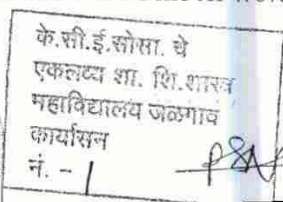 के.सी.ई.सोसा. चे
एकलव्य शा. शि.शास्त्र
महाविद्यालय जळगाव
कार्यासन
नं. - 1